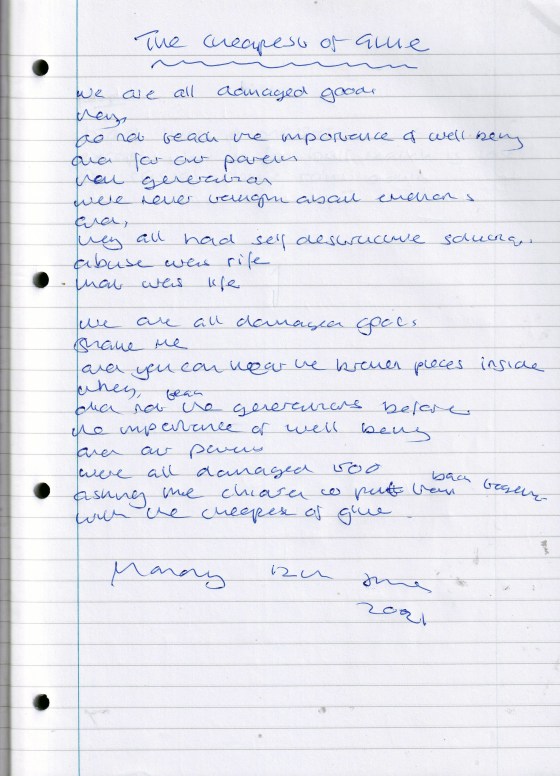 The cheapest of Glue
we are all damaged goods
they,
do not teach the importance of well being
and for our parents
their generation
were never taught about emotions
and,
they all had self destructive
abuse was rife
that was life
we are all damaged goods
Shake me
and you can hear the broken pieces inside
they,
did not teach the generations before
the importance of well being
and our parents
were all damaged too
asking the children to put them back together
with the cheapest of glue
12th June
2021